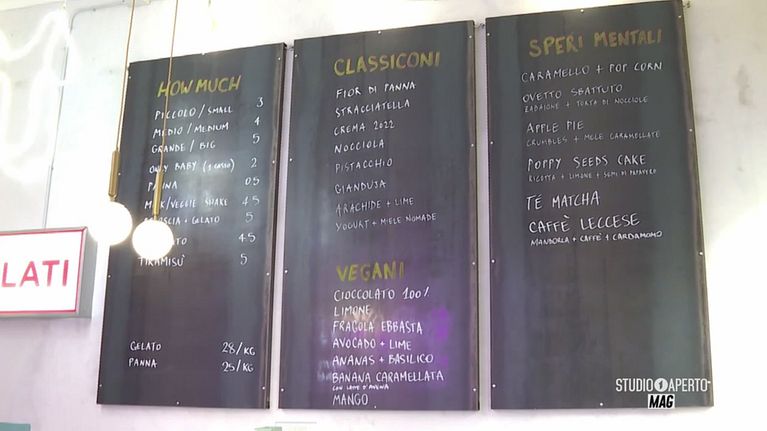 HOW MUCH
PICCOLO / SMALL 3
MEDIO / MEDIUM 4
GRANDE / BIG 5
ONLY BABY (1 GUSTO) 2
PANNA 0.5
MILK/VEGGIE SHAKE 4.5
+ GELATO 5
4.5
TIRAMISÙ 5
GELATO 28/KG
PANNA 25/KG
CLASSICONI
FIOR DI PANNA
STRACCIATELLA
CREMA 2022
NOCCIOLA
PISTACCHIO
GIANDUJA
ARACHIDE + LIME
YOGURT + MIELE NOMADE
VEGANI
CIOCCOLATO 100%
LIMONE
FRAGOLA EBBASTA
AVOCADO + LIME
ANANAS + BASILICO
BANANA CARAMELLATA
CON LATTE D'AVENA
MANGO
SPERI MENTALI
CARAMELLO + POP CORN
OVETTO SBATTUTO
ZABAIONE + TORTA DI NOCCIOLE
APPLE PIE
CRUMBLES + MELE CARAMELLATE
POPPY SEEDS CAKE
RICOTTA + LIMONE + SEMI DI PAPAVERO
TÈ MATCHA
CAFFÈ LECCESE
MANDORLA + CAFFÈ + CARDAMOMO
LATI
STUDIO APERTO
MAG